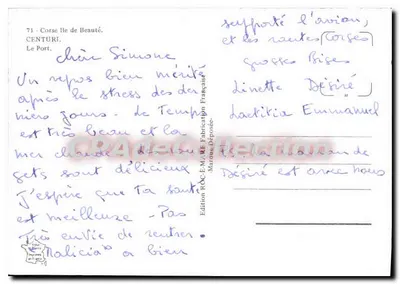 71 - Corse Ile de Beauté.
CENTURI.
Le Port.
chère Simone
Un repos bien mérité
après le stress des der
niers jours. Le Temps
est très beau et la
mer chaude
gets sont délicieux
J'espère que Ta santé
est meilleure - Pas
Très envie de rentrer.
"Malicia" a bien
Edition ROC-E-M.-ME Fabrication Française
-Marque Déposée-
supporté l'avion,
et les routes Corses
grosses Bises
Linette Désiré
Laetitia Emmanuel
de
Désiré est avec nous